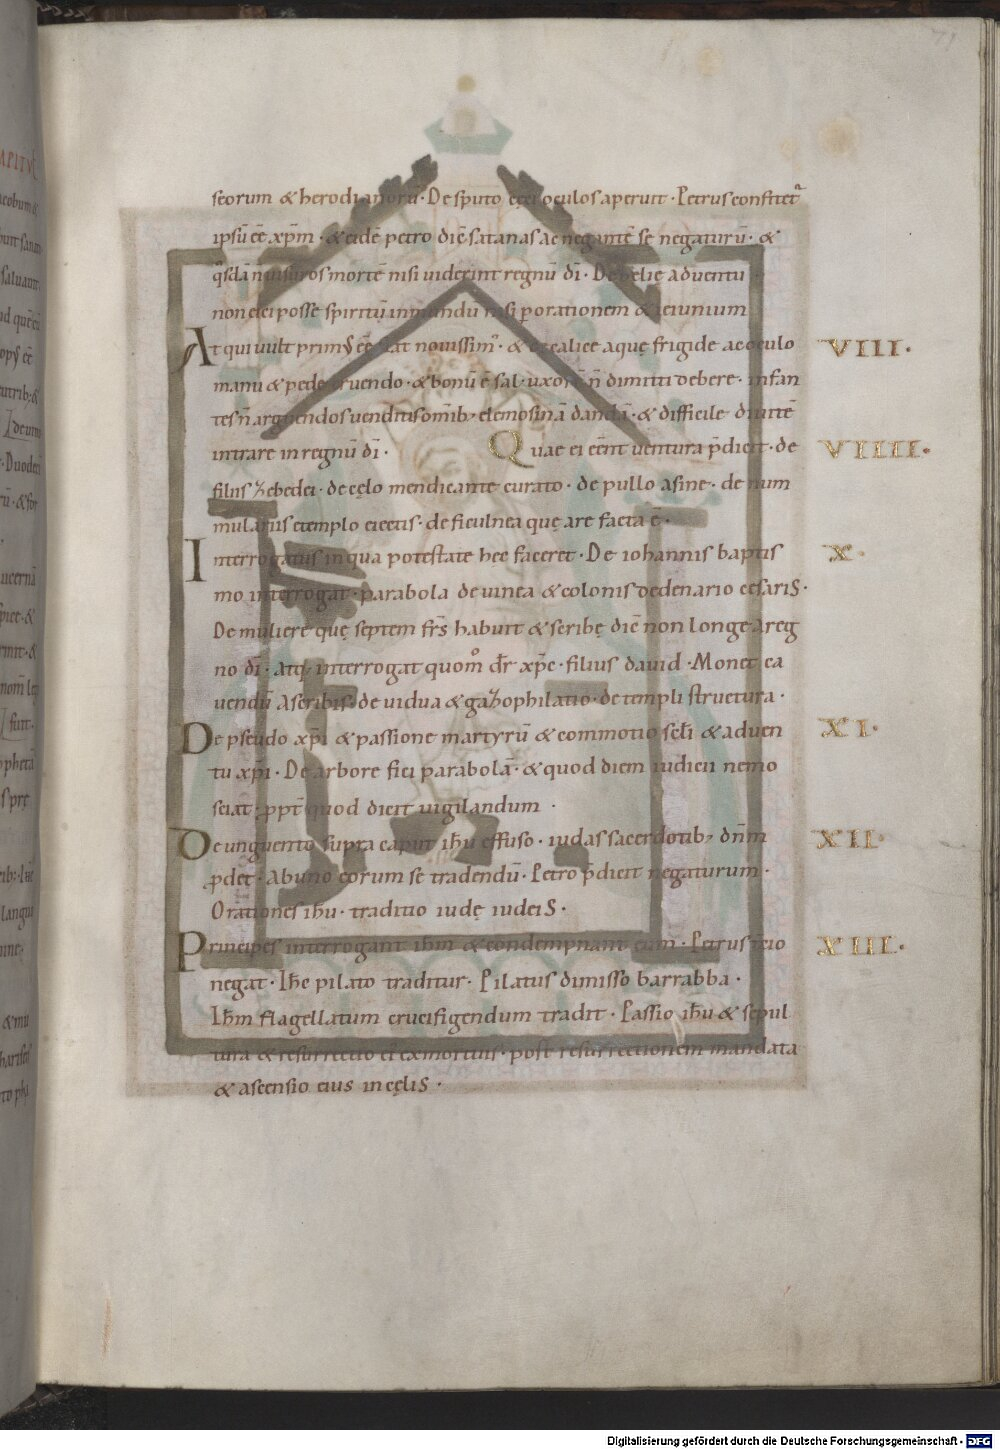 79
seorum & herodianorū · De sputo ceci oculos aperuit · Petrus confitet᷑
ipsū eē xp̄m · & eidē petro diē satanas ac negantē se negaturū · &
q̊sdā n̄ uisuros mortē nisi uiderint regnū dī · De helie aduentu
non eici posse spiritū inmundū nisi p̱ orationem & ieiunium
At qui uult prim᷒ eē erat nouissim᷒ · & de calice aquę frigidę ac oculo VIII ·
manu & pede eruendo · & bonū ē sal · uxorē n̄ dimitti debere · infan
tes n̄ arguendos uenditis omīb; elemosinā dandā · & difficile diuitē
intrare in regnū dī · Quae ei eēnt uentura p̄dicit · de VIIII ·
filiis zebedei · de cęlo mendicante curato · de pullo asine · de num
mulariis e templo eiectis · de ficulnea quę arefacta ē ·
Interrogatus in qua potestate hec faceret · De iohannis baptis X ·
mo interrogat · parabola de uinea & colonis de denario cesaris ·
De muliere quę septem fr̄s habuit & scribę diē non longe a reg
no dī · atq; interrogat quom̊ dr̄ xp̄c · filius dauid · Monet ca
uendū a scribis · de uidua & gazophilatio · de templi structura ·
De pseudo xp̄i & passione martyrū & commotio sęl̄i & aduen XI ·
tu xp̄i · De arbore fici parabolā · & quod diem iudicii nemo
sciat · ꝓpt̄ quod dicit uigilandum ·
De unguento supra caput ih̄u effuso · iudas sacerdotib; dn̄m XII ·
ꝓdet · Ab uno eorum se tradendū · Petro p̄dicit negaturum ·
Orationes ih̄u · traditio iudę iudeis ·
Principes interrogant ih̄m & condempnant eum · Petrus t̄cio XIII ·
negat · Ih̄c pilato traditur · Pilatus dimisso barrabba ·
Ih̄m flagellatum crucifigendum tradit · Passio ih̄u & sepul
tura & resurrectio ei᷒ ex mortuis · post resurrectionem mandata
& ascensio eius in cęlis ·
Digitalisierung gefördert durch die Deutsche Forschungsgemeinschaft - DFG